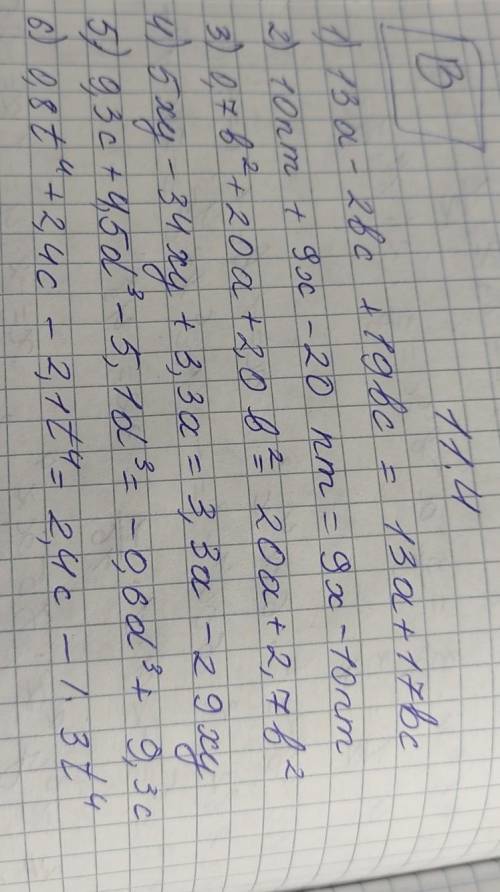 11.4
В
1) 13a - 2bc + 19bc = 13a + 17bc
2) 10nm + 9x - 20 nm = 9x - 10nm
3) 0,7b² + 20a + 2,0b² = 20a + 2,7b²
4) 5xy - 34xy + 3,3a = 3,3a - 29xy
5) 9,3c + 4,5d³ - 5,1d³ = -0,6d³ + 9,3c
6) 0,8t⁴ + 2,4c - 2,1t⁴ = 2,4c - 1.3t⁴